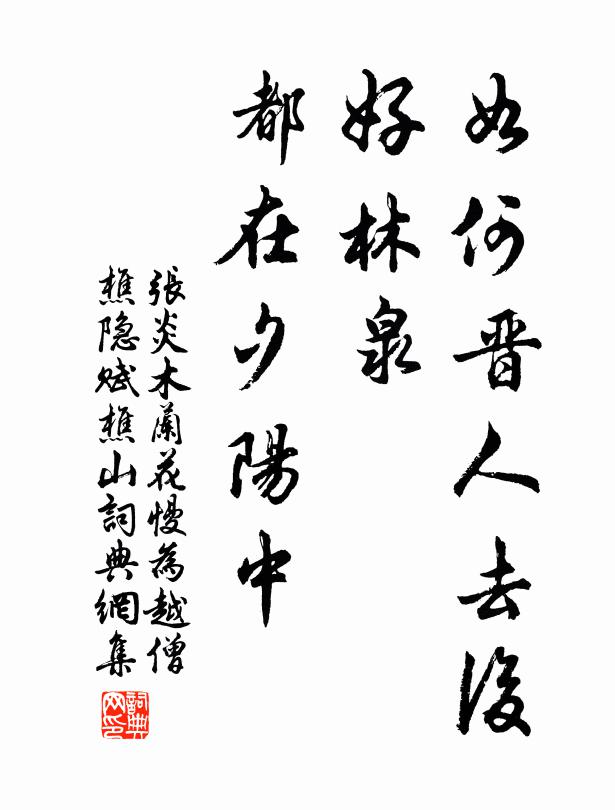 如何晋人去後
好林泉
都在夕陽中
張炎木蘭花慢為越僧
樵隐赋樵山詞典網集
詞典網印